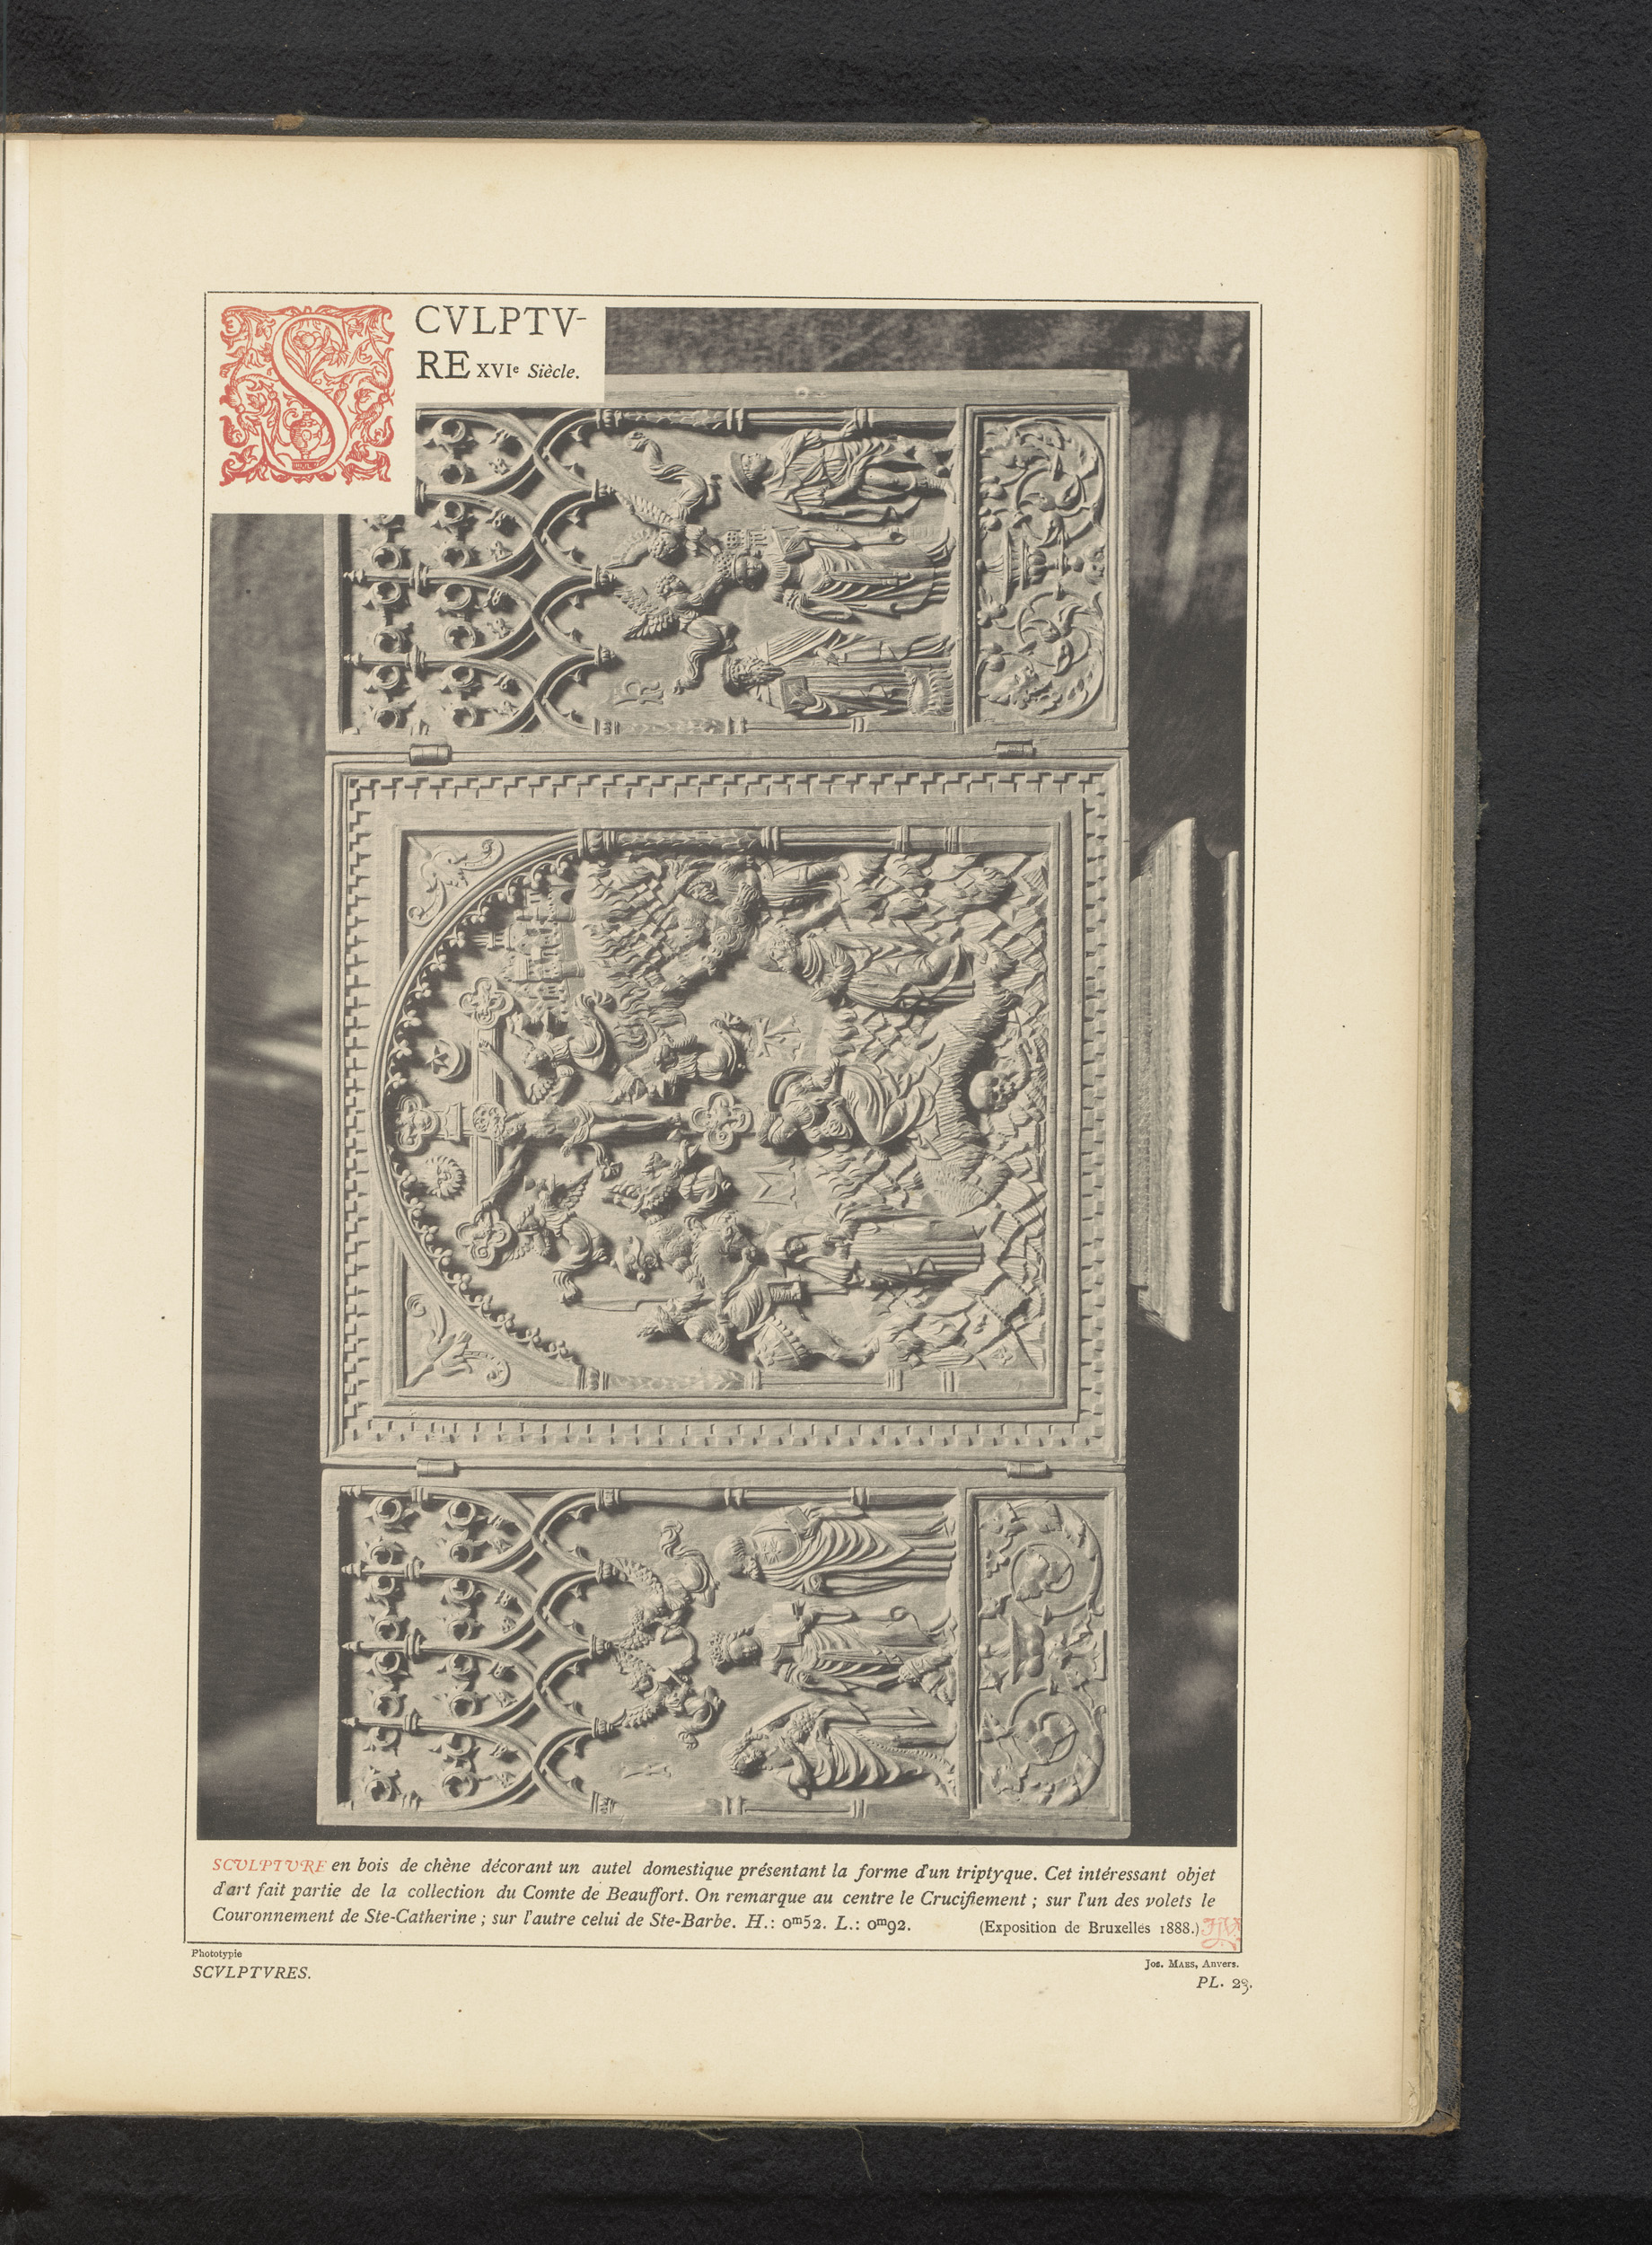 SCVLPTV-
RE XVIe Siècle.
SCVLPTVRE en bois de chêne décorant un autel domestique présentant la forme d'un triptyque. Cet intéressant objet
d'art fait partie de la collection du Comte de Beauffort. On remarque au centre le Crucifiement ; sur l'un des volets le
Couronnement de Ste-Catherine ; sur l'autre celui de Ste-Barbe. H.: 0m52. L.: 0m92. (Exposition de Bruxelles 1888.)
Phototypie
Jos. Maes, Anvers.
SCVLPTVRES.
PL. 23.